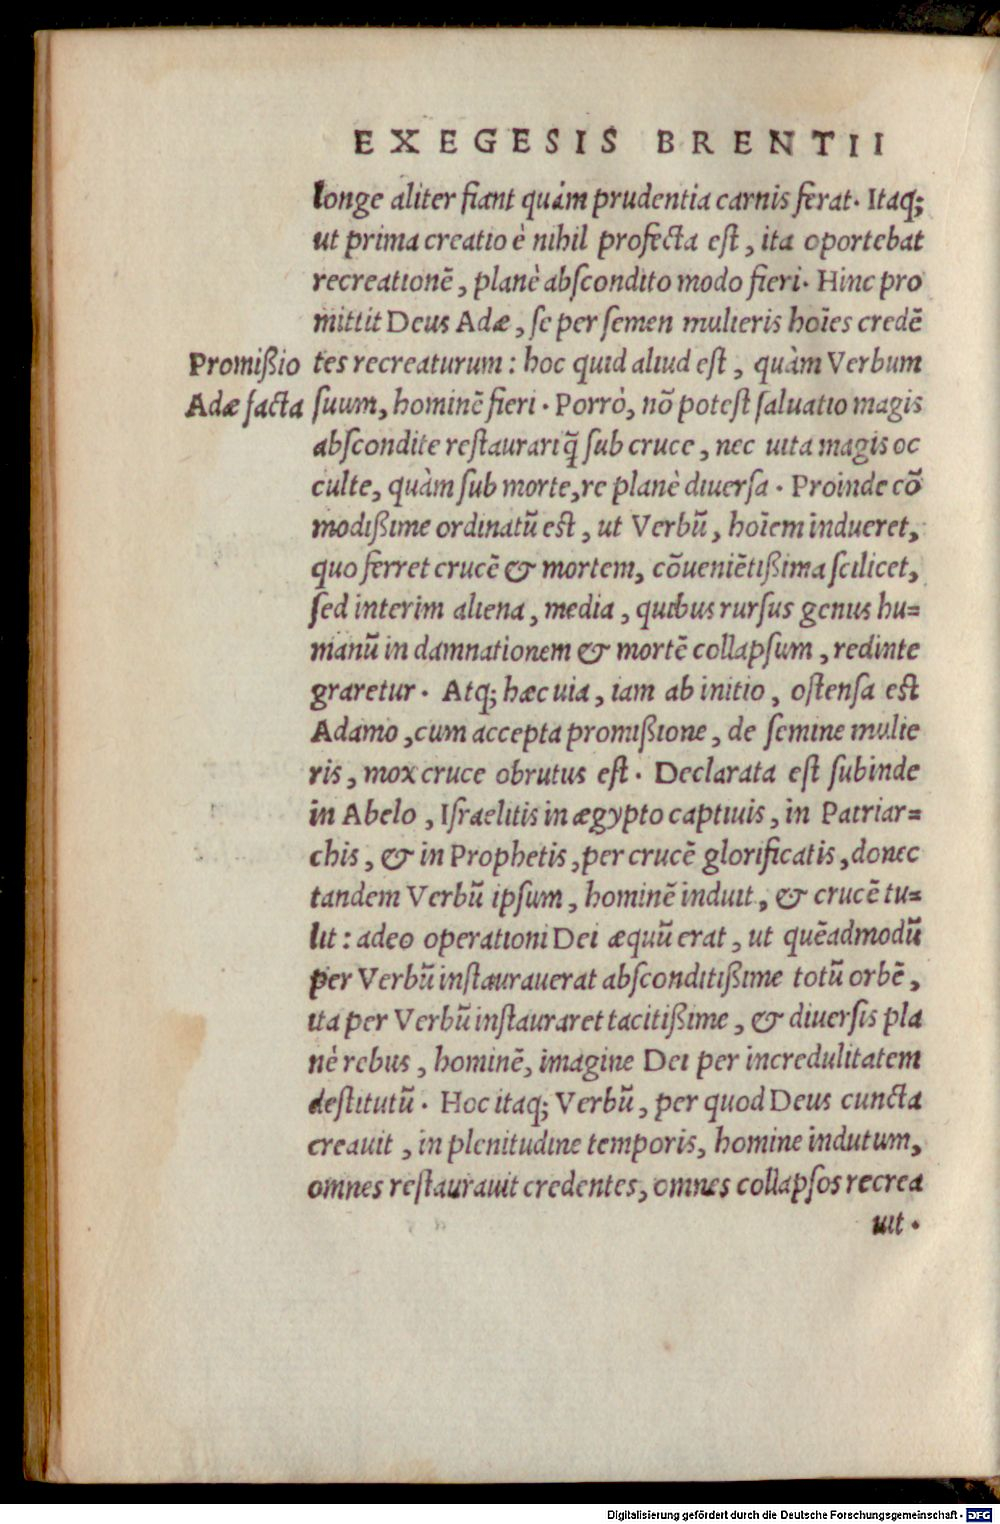 EXEGESIS BRENTII
longe aliter fiant quàm prudentia carnis ferat. Itaq;
ut prima creatio è nihil profecta est, ita oportebat
recreationē, planè abſcondito modo fieri. Hinc pro
mittit Deus Adæ, ſe per ſemen mulieris hoīes credē
Promißio
tes recreaturum: hoc quid aliud eſt, quàm Verbum
Adæ facta
ſuum, hominē fieri. Porrò, nō poteſt ſaluatio magis
abſcondite reſtaurari q̃ ſub cruce, nec uita magis oc
culte, quàm ſub morte, re planè diuerſa. Proinde cō
modißime ordinatū est, ut Verbū, hoīem indueret,
quo ferret crucē & mortem, cōueniētißima ſcilicet,
ſed interim aliena, media, quibus rurſus genus hu=
manū in damnationem & mortē collapſum, redinte
graretur. Atq; hæc uia, iam ab initio, oſtenſa est
Adamo, cum accepta promißione, de ſemine mulie
ris, mox cruce obrutus eſt. Declarata eſt ſubinde
in Abelo, Iſraelitis in ægypto captiuis, in Patriar=
chis, & in Prophetis, per crucē glorificatis, donec
tandem Verbū ipſum, hominē induit, & crucē tu=
lit: adeo operationi Dei æquū erat, ut quēadmodū
per Verbū inſtaurauerat abſconditißime totū orbē,
ita per Verbū inſtauraret tacitißime, & diuerſis pla
nè rebus, hominē, imagine Dei per incredulitatem
deſtitutū. Hoc itaq; Verbū, per quod Deus cuncta
creauit, in plenitudine temporis, homine indutum,
omnes reſtaurauit credentes, omnes collapſos recrea
uit.
Digitalisierung gefördert durch die Deutsche Forschungsgemeinschaft - DFG